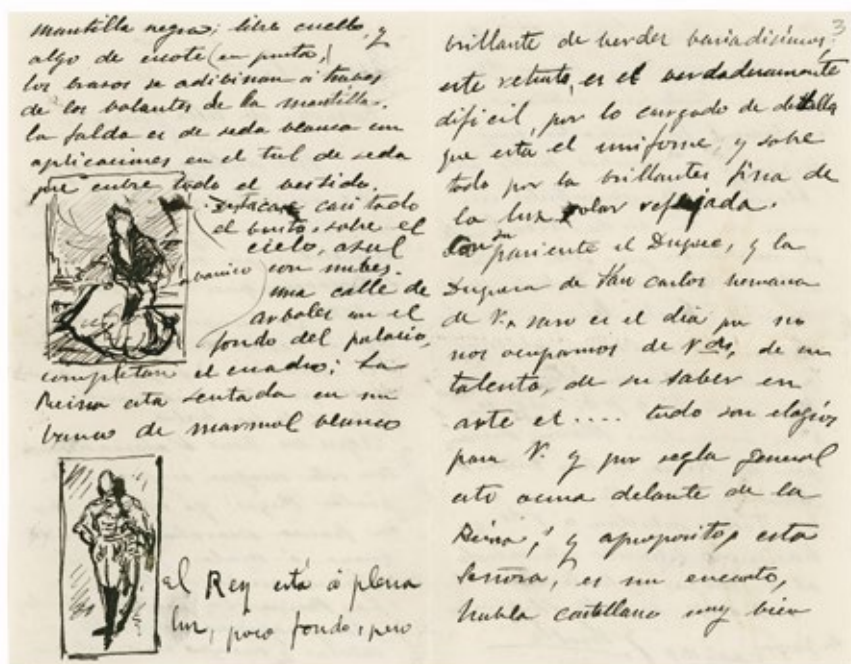 mantilla negra; libre cuello, y
algo de escote (en punta,)
los brasos se adibinan á traves
de los bolantes de la mantilla.
la falda es de seda blanca con
aplicaciones en el tul de seda
que cubre todo el bestido.
Destacase casi todo
el busto, sobre el
cielo, asul
abanico
con nubes.
una calle de
arboles en el
fondo del palacio,
completan el cuadro; La
Reina esta sentada en un
banco de marmol blanco
El Rey está á plena
luz, poco fondo, pero
3
brillante de berdes bariadisimos;
este retrato, es el berdaderamente
dificil, por lo cargado de detalle
que está el uniforme, y sobre
todo por la brillantes fisica de
la luz solar reflejada.
Con su pariente el Duque, y la
Duquesa de San Carlos hermana
de V. raro es el dia que no
nos ocupamos de Vdes, de su
talento, de su saber en
arte et.... todo son elogios
para V. y por regla general
esto ocurre delante de la
Reina, y aproposito, esta
Señora, es un encanto,
habla castellano muy bien